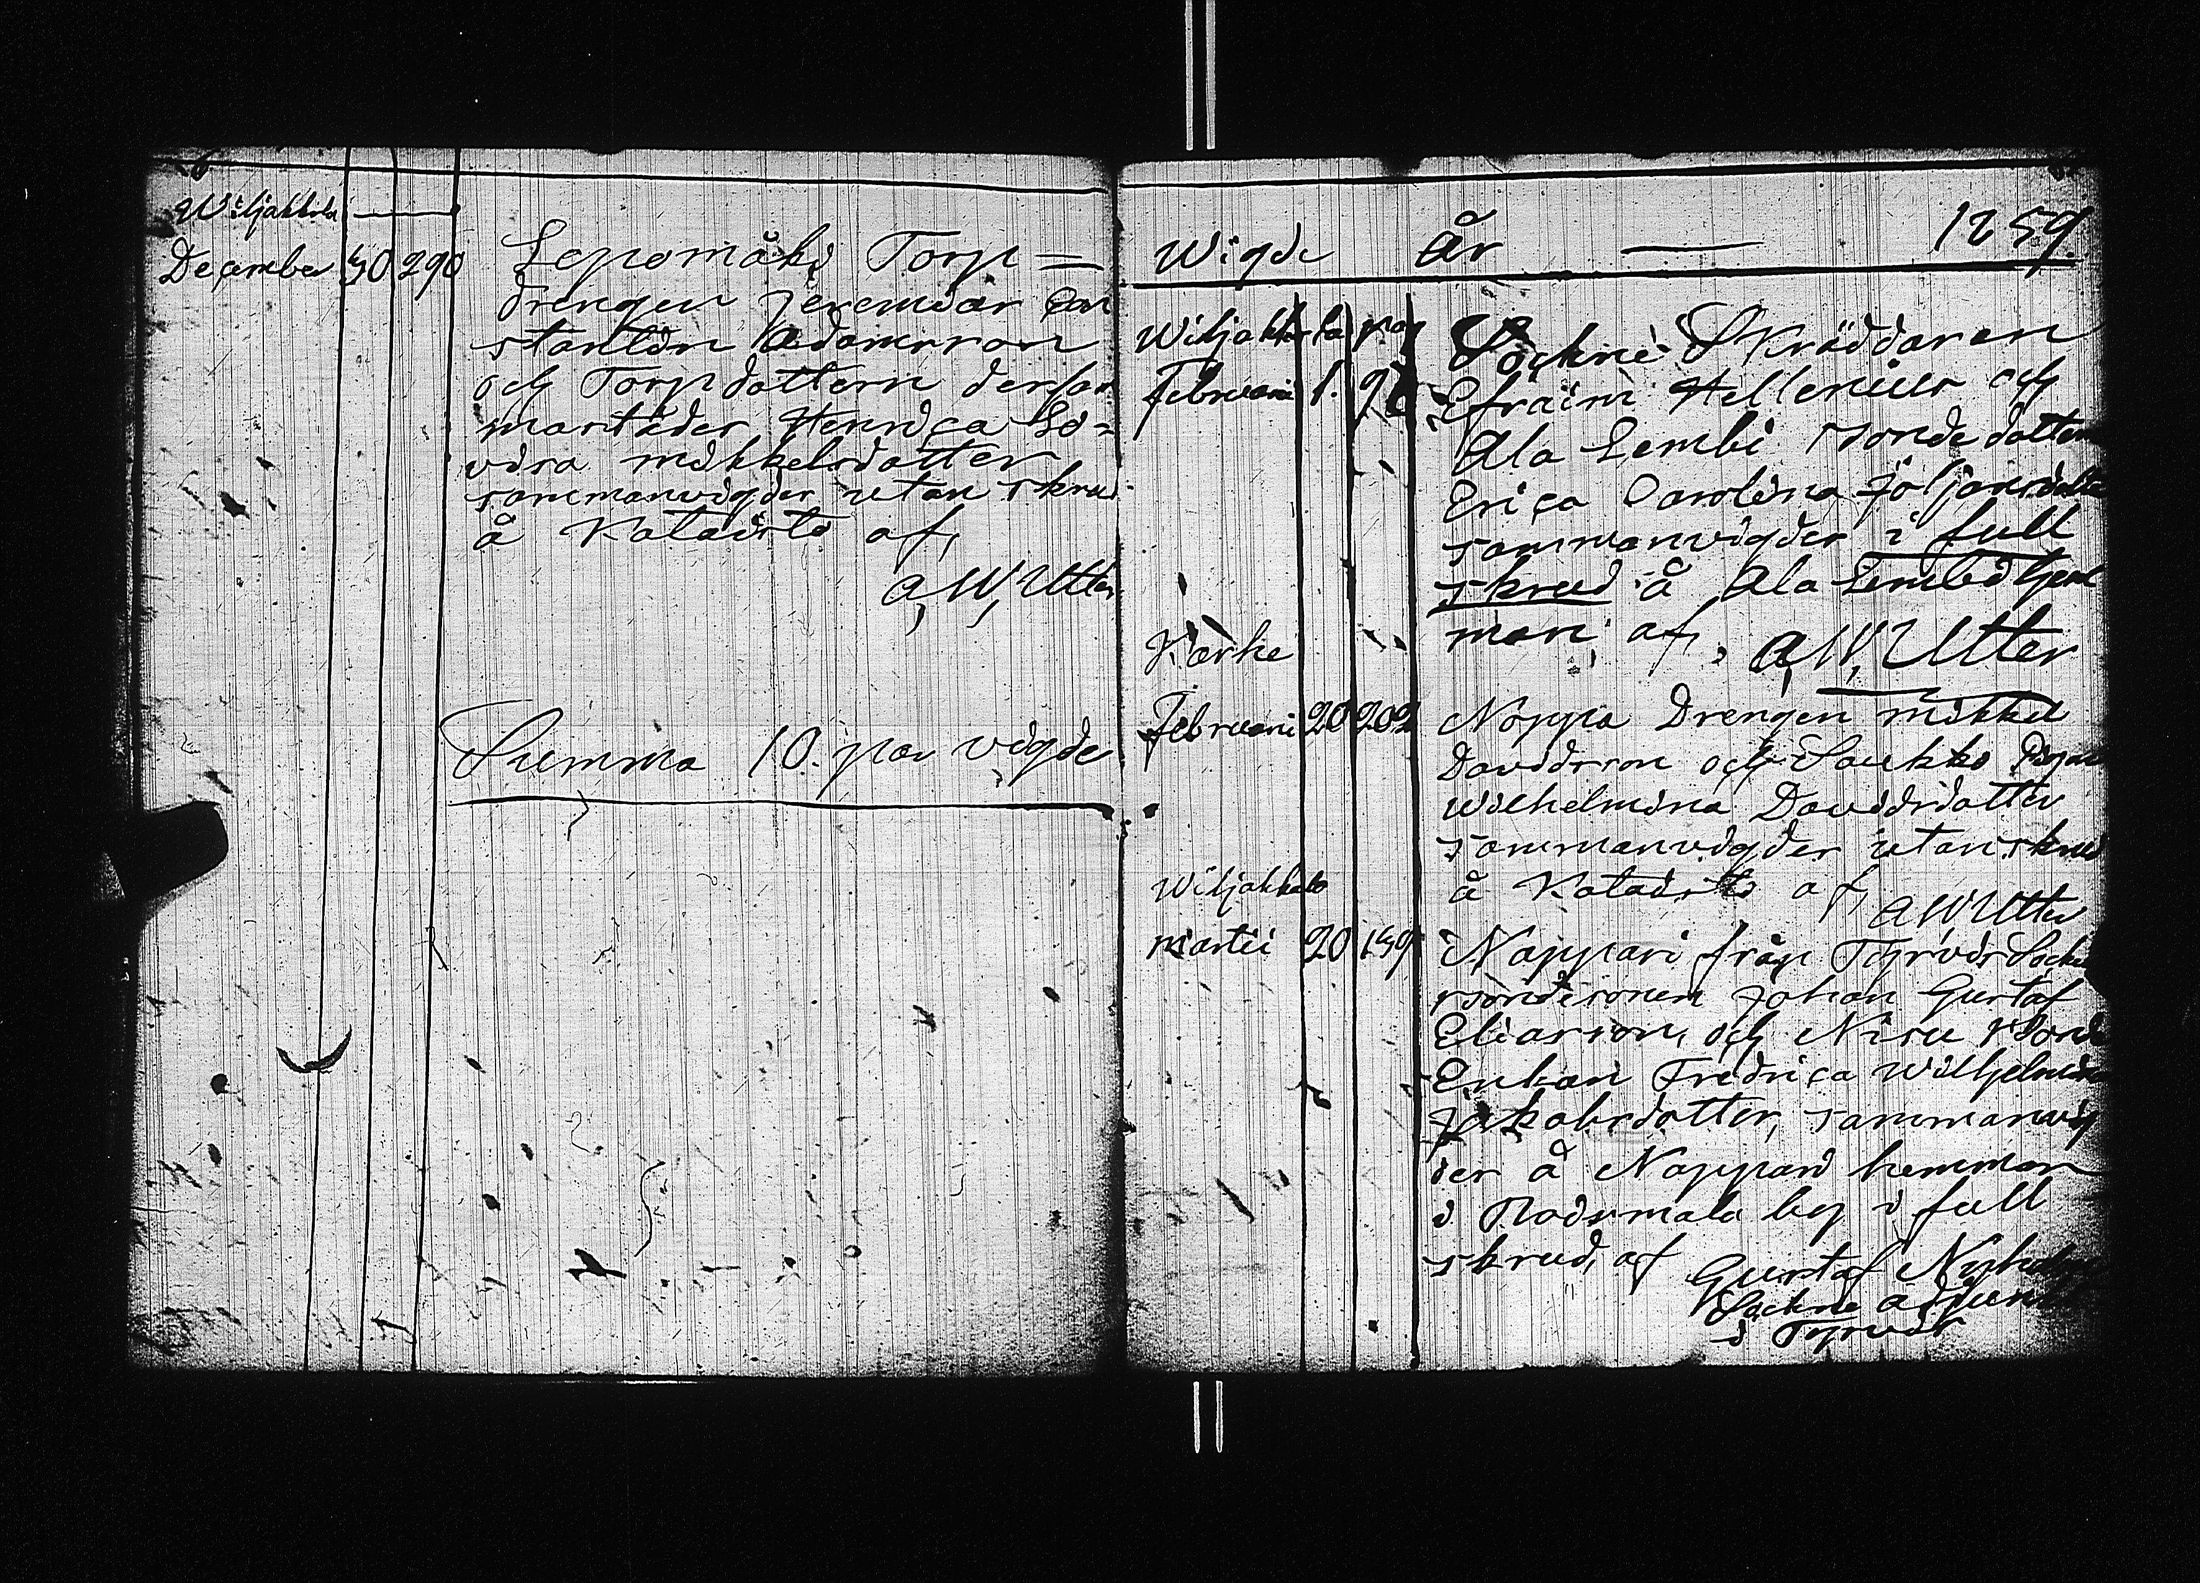 Wiljakkala
December 30 290 Lepomäki Torp=
drengen Jeremias Con
stantin Adamsson
och Torpdottern dersam
mastädes Henrica Lo=
visa Mikkelsdotter
sammanvigdes utan skrud
å Kataisto af,
A, W, Utter
Summa 10. par vigde
Wigde År — 1859.
Wiljakkala pag
Februari 1. 97 Sockne Skräddaren
Efraim Hellenius och
Ala Lembi Bonde dottern
Erica Carolina Följansdotter
sammanvigdes i full
skrud å Ala Lembi hem
man, af, A, W, Utter
Karhe
Februari 20 202 Noppa Drengen Mikkel
Davidsson och Saukko Pigan
Wilhelmina Davidsdotter
sammanvigdes utan skrud
å Kataisto af, A W Utter
Wiljakkala
Martii 20 159 Nappari från Tyrvis Socken
Bondesonen Johan Gustaf
Eliasson, och Nisu Bonde
Enkan Fredrica Wilhelmina
Jakobsdotter, sammanvig
des å Nappari hemman
i Roismala by i full
skrud, af Gustaf
Sockne adjunct
i Tyrvis